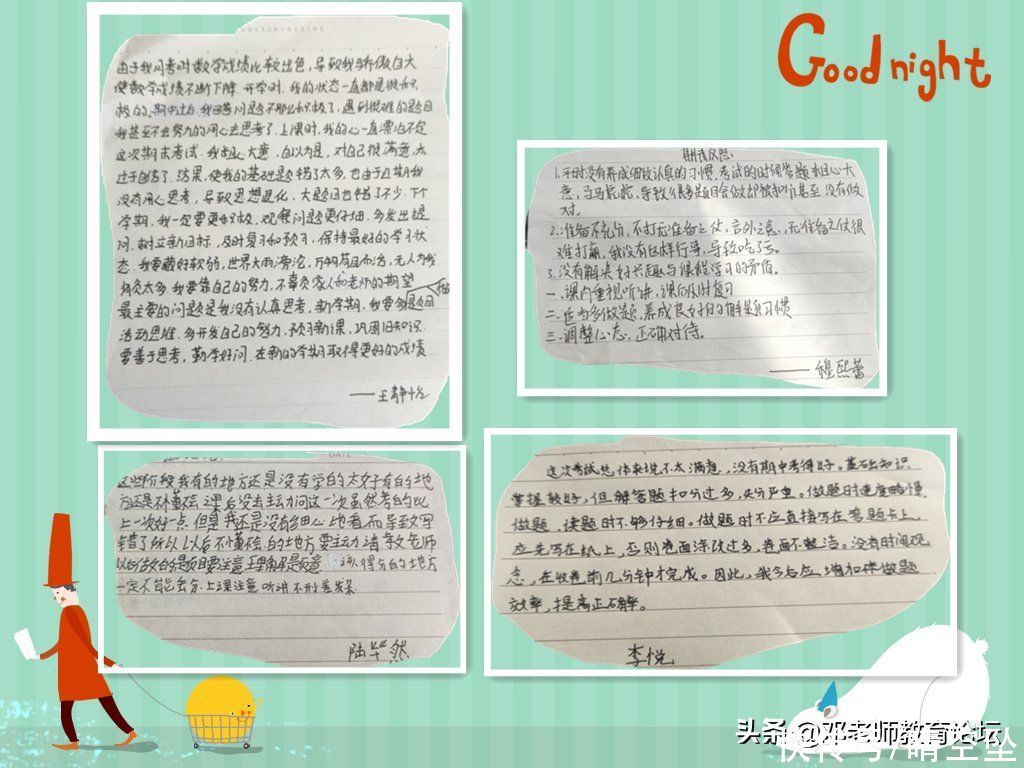 Good night
由于我月考时数学成绩比较出色，导致我骄傲自大
使数学成绩不断下降.开学时.我的状态一直都是很积
极的.期中过后.我回答问题不那么积极了.遇到很难的题目
我甚至不会努力的用心去思考了.上课时，我的心一直漂泊不定
这次期末考试.我粗心大意，自以为是，对自己很满意，太
过于自信了.结果，使我的基础题错了太多，也由于在期我
没有用心思考，导致思想退化，大题目也错了不少.下个
学期，我一定要更积极，观察问题更仔细，多发出提
问，树立新目标，及时复习和预习，保持最好的学习状
态.我要藏好软弱，世界大雨滂沱，万物苟且而活，无人为我
背负太多.我要靠自己的努力，不辜负家人和老师的期望
最主要的问题是我没有认真思考，新学期，我要多做题目
活动思维，多开发自己的努力，预习新课，巩固旧知识
要善于思考，勤学好问.在新的学期取得更好的成绩
——王静怡
期末反思
1.平时没有养成细致认真的习惯，考试的时候答题粗心大
意，马马虎虎，导致很多题目会做却被扣分甚至没有做
对。
2.准备不充分，不打无准备之仗，言外之意，无准备之仗很
难打赢，我没有这样行事，导致吃了亏。
3.没有解决好兴趣与课程学习的矛盾。
一.课内重视听讲，课后及时复习
二.适当多做题，养成良好的解题习惯
三.调整心态，正确对待。
——穆熙蕾
DATE
这些阶段我有的地方还是没有学的太好有的地
方还是不懂会课后没去主动问这一次虽然考的比
上一次好一点但是我还是没有细心地看而导致写
错了所以以后不懂不会的地方要主动请教老师
以后做的题要注意理解题意 该得分的地方
一定不能丢分.上课注意听讲不开差
陆毕然
这次考试总体来说不太满意，没有期中考得好。基础知识
掌握较好，但解答题扣分过多，失分严重。做题时速度略慢，
做题、读题时不够仔细。做题时不应直接写在答题卡上，
应先写在纸上，否则卷面涂改过多，卷面不整洁。没有时间观
念，在收卷前几分钟才完成。因此，我今后应增加做题
效率，提高正确率。
李悦
头条 @邓老师教育论坛
快传号/晴空坠